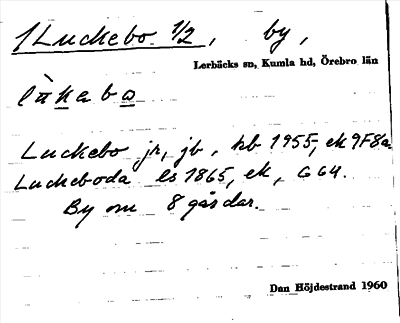 1Luckebo 1/2, by,
Lerbäcks sn, Kumla hd, Örebro län
lükabo
Luckebo jr, jb, kb 1955, ek 9F8a
Luckeboda ls 1865, ek, G64.
By om 8 gårdar.
Dan Höjdestrand 1960